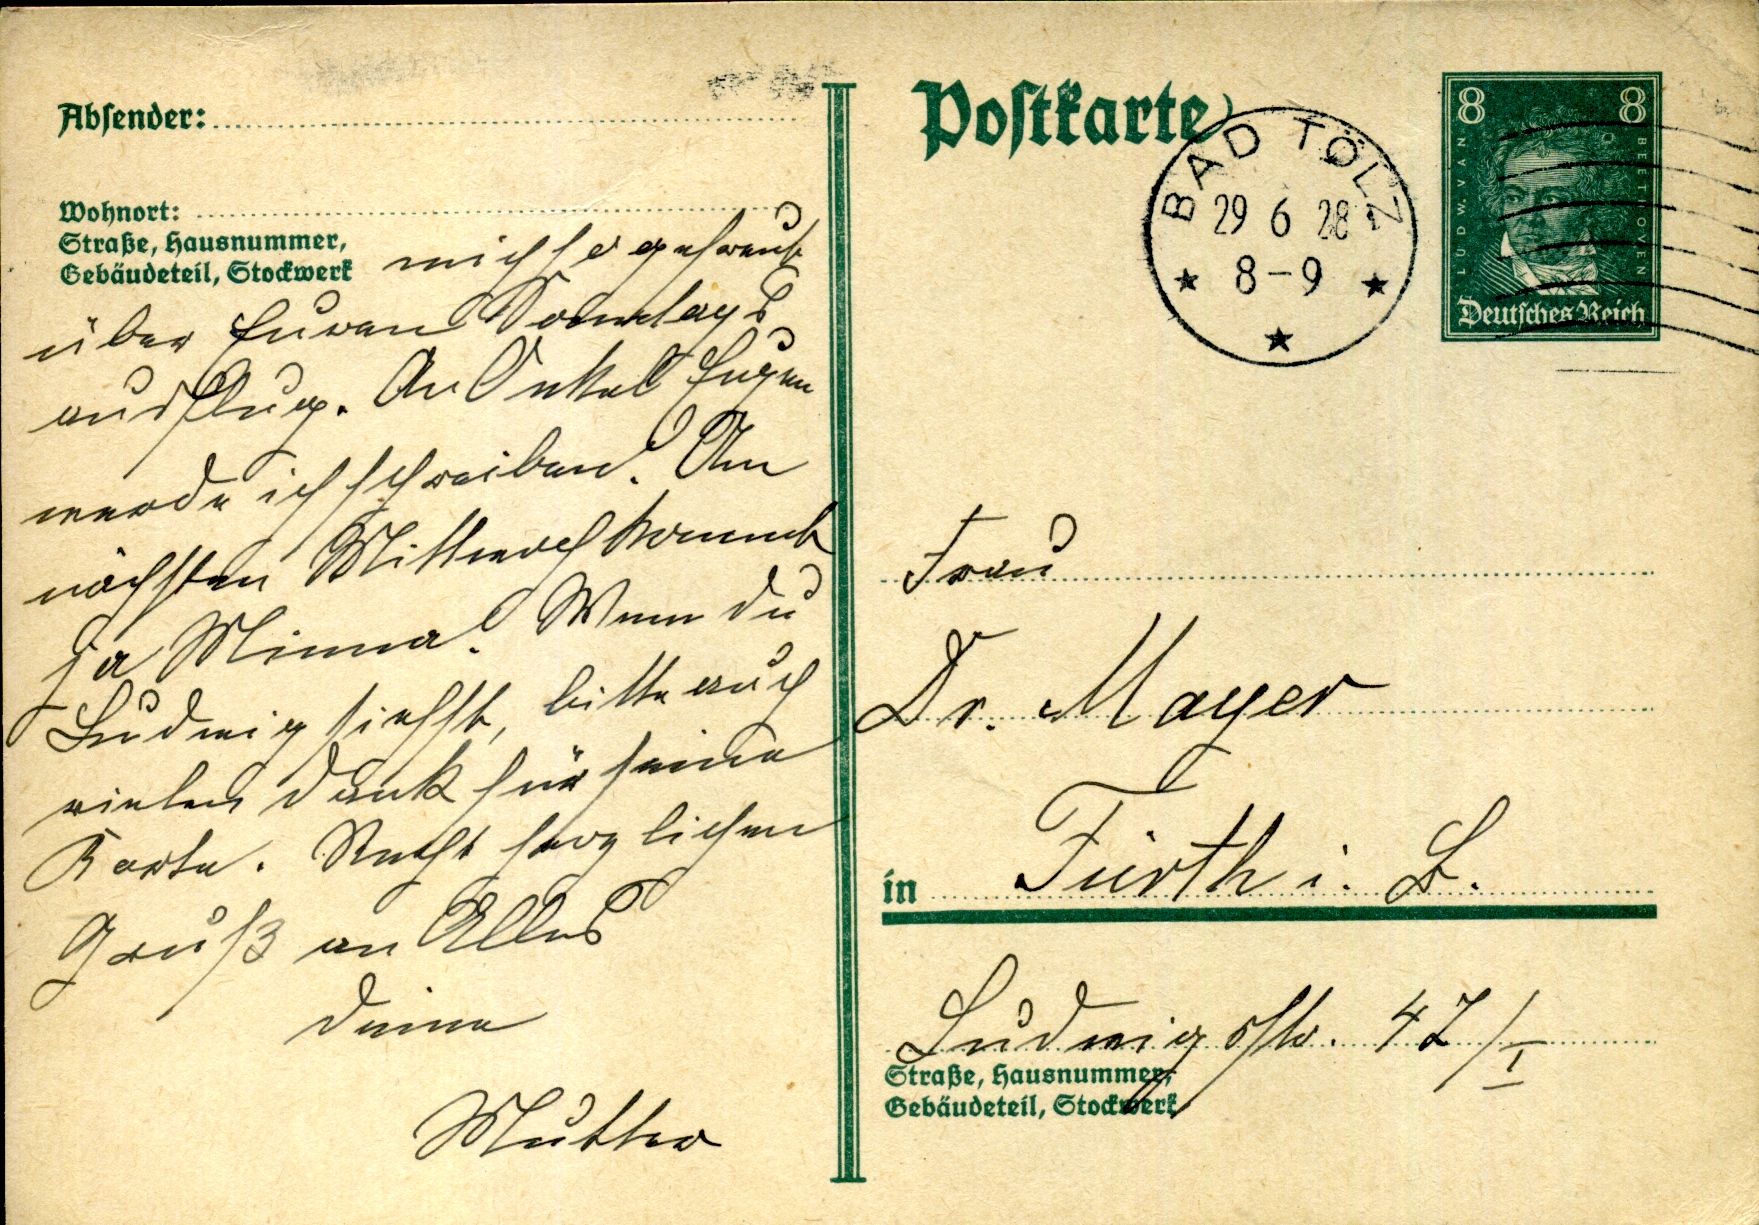 Absender:
Wohnort:
Straße, Hausnummer,
Gebäudeteil, Stockwerk
mich so gefreut
über Euren Sonntags
ausflug. An Onkel Eugen
werde ich schreiben. Am
nächsten Mittwoch kommt
ja Minna! Wenn du
Ludwig siehst, bitte auch
vielen Dank für seine
Karte. Recht herzlichen
Gruß an Alles
Deine
Mutter
Postkarte
BAD TÖLZ
29 6 28
8-9
8 8
LUDW. VAN BEETHOVEN
Deutsches Reich
Frau
Dr. Mayer
in Fürth i. B.
Ludwigstr. 47/I
Straße, Hausnummer,
Gebäudeteil, Stockwerk